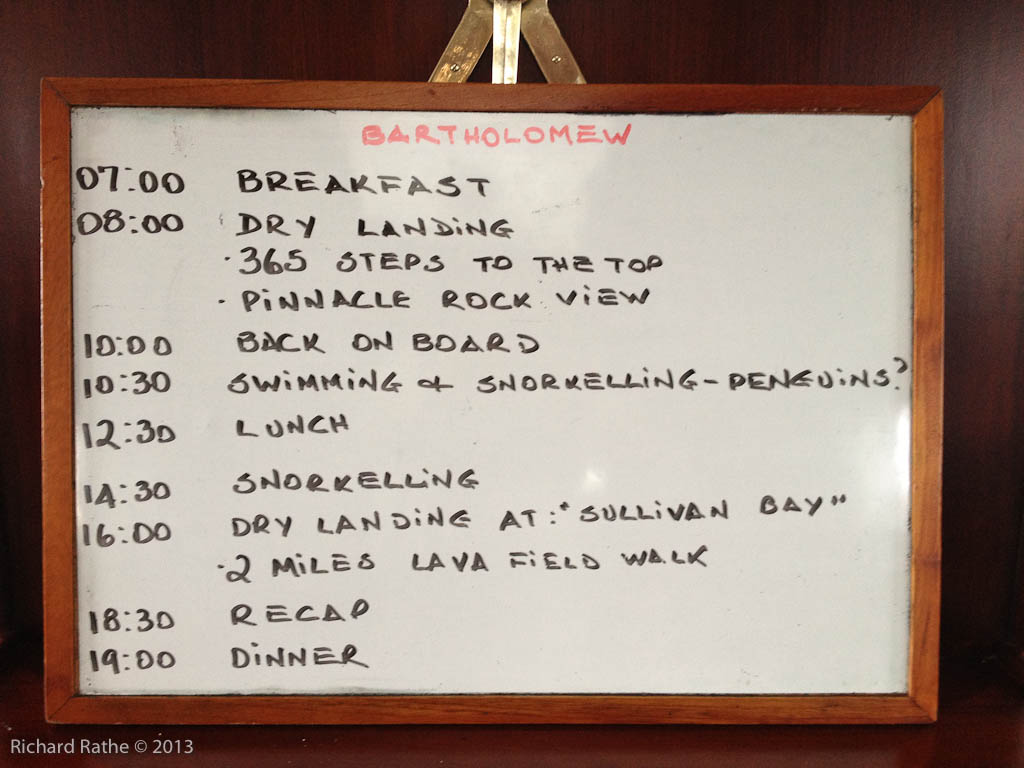 BARTHOLOMEW
07:00 BREAKFAST
08:00 DRY LANDING
· 365 STEPS TO THE TOP
· PINNACLE ROCK VIEW
10:00 BACK ON BOARD
10:30 SWIMMING & SNORKELLING - PENGUINS?
12:30 LUNCH
14:30 SNORKELLING
16:00 DRY LANDING AT: "SULLIVAN BAY"
· 2 MILES LAVA FIELD WALK
18:30 RECAP
19:00 DINNER
Richard Rathe © 2013